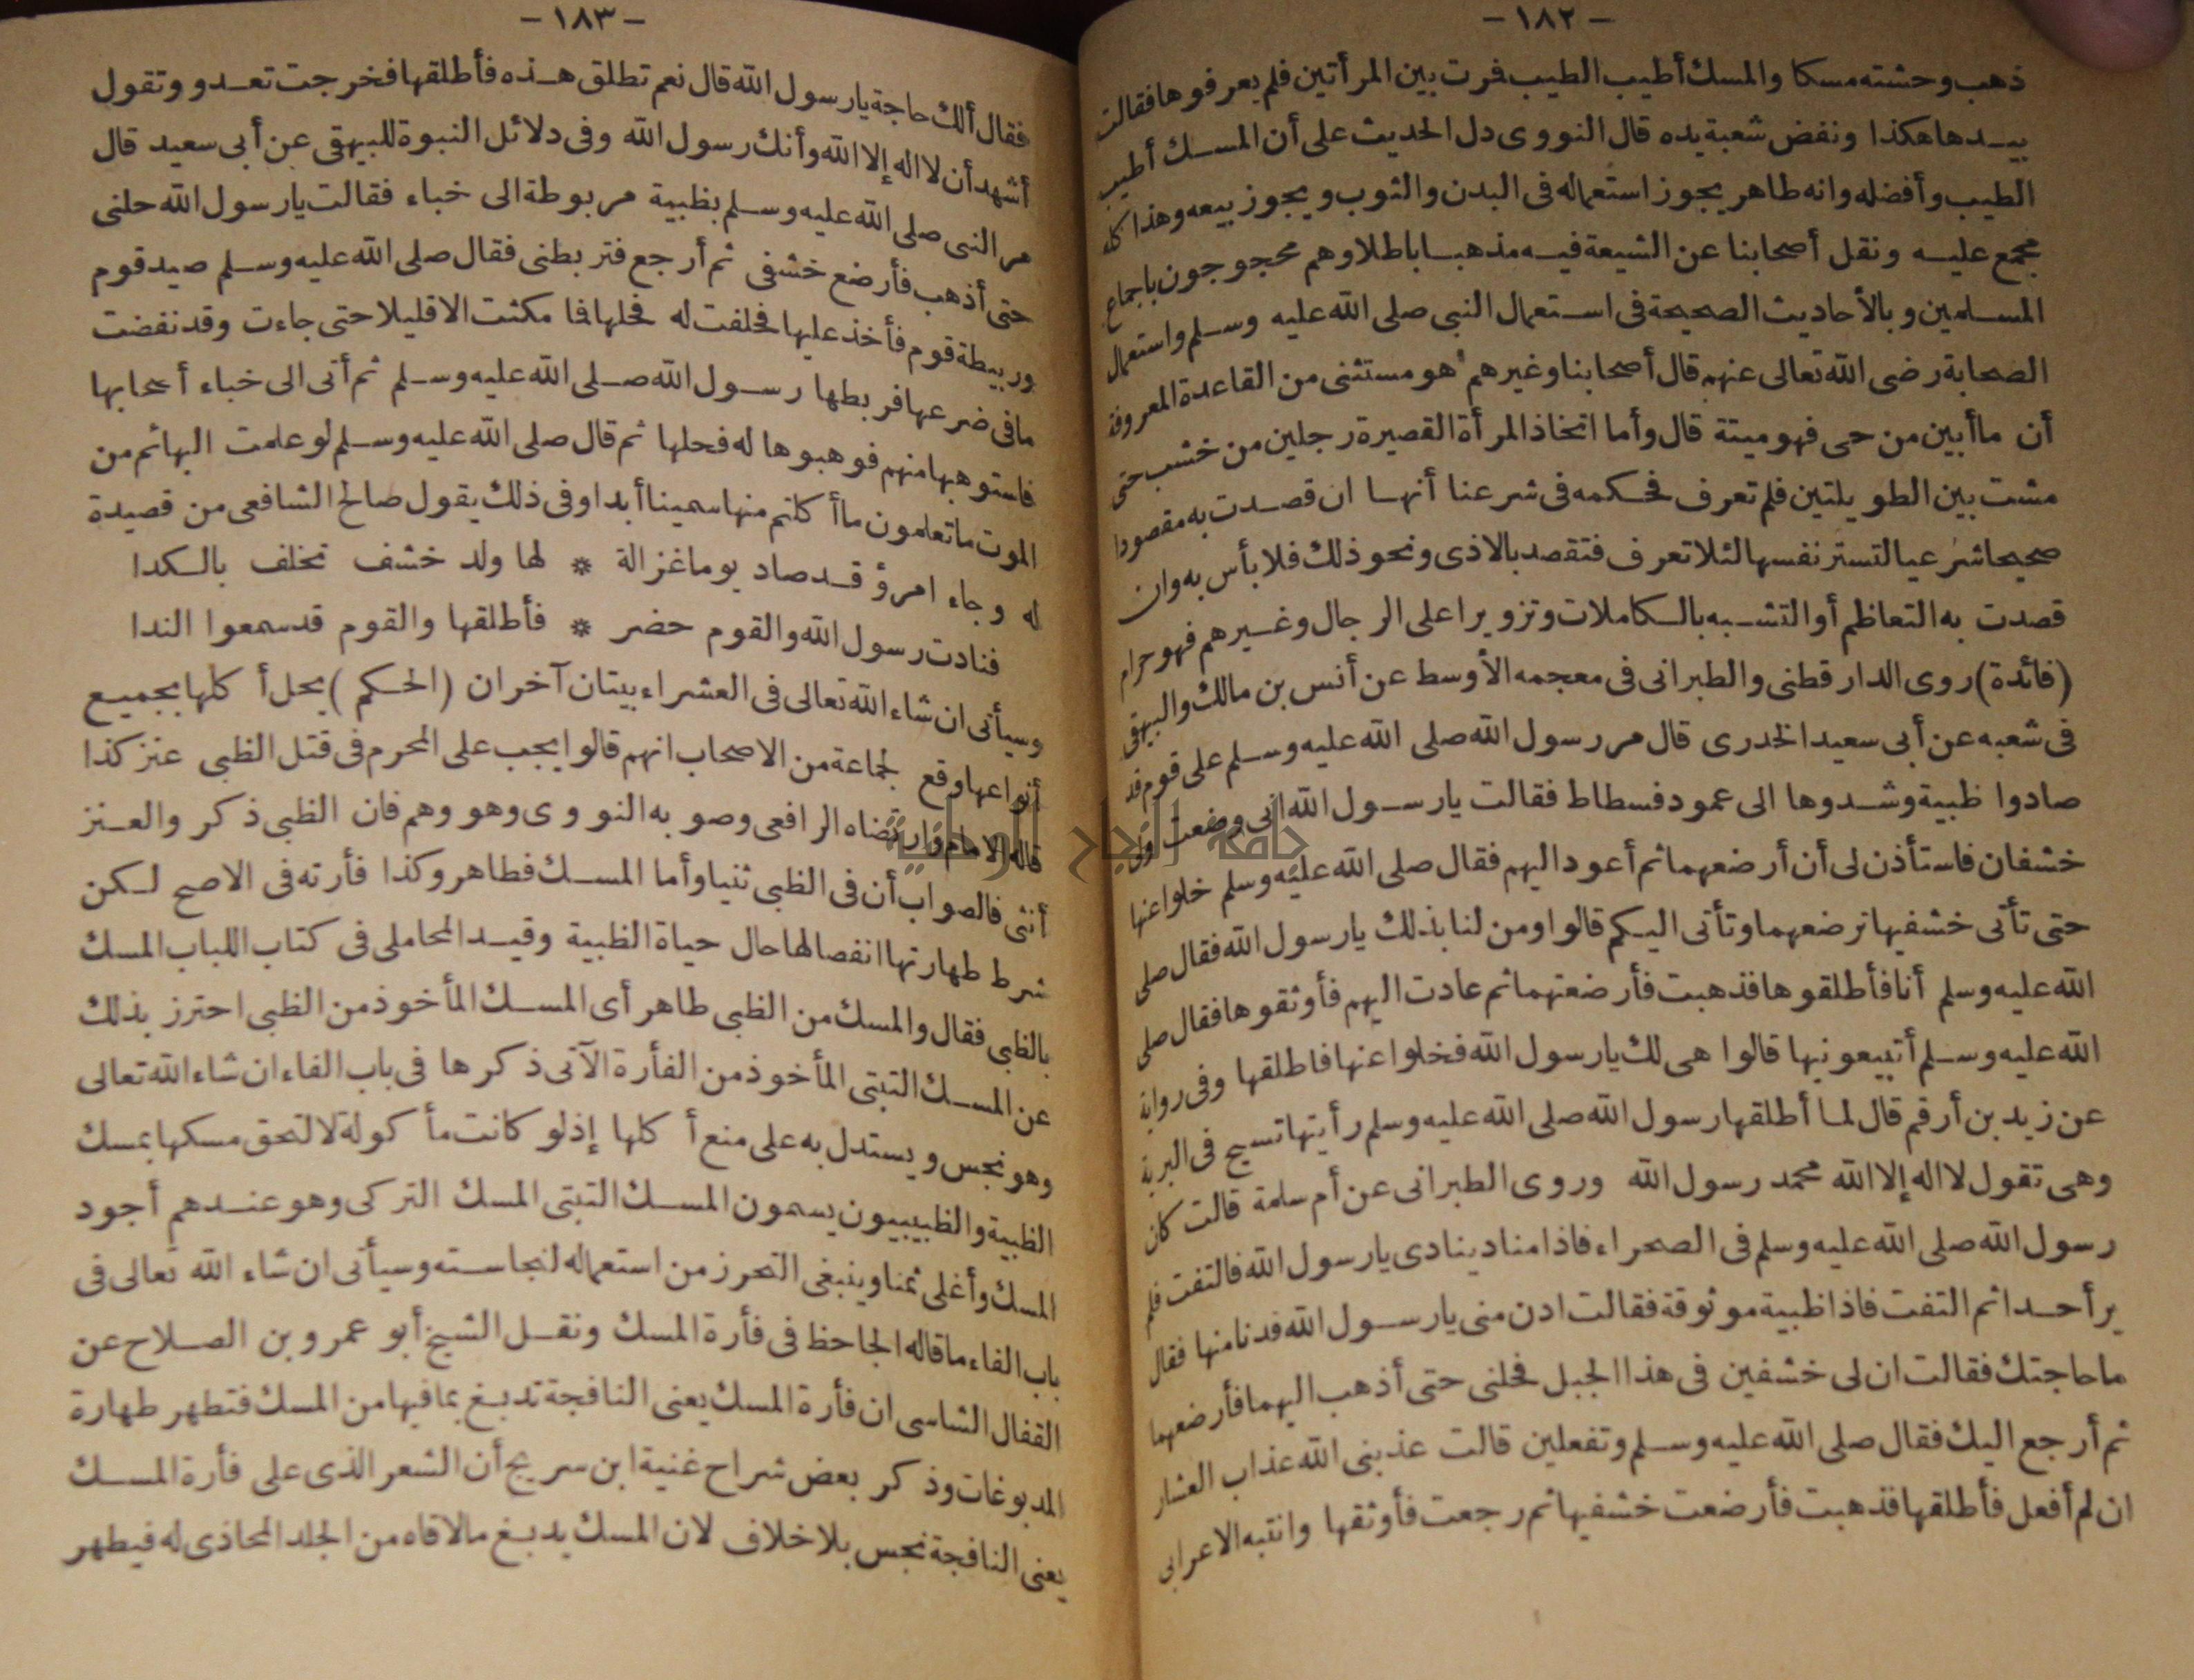 - ١٨٢ -
ذهب وحشته مسكا والمسك أطيب الطيب فمرت بين المرأتين فلم يعرفوها فقالت
بيدها هكذا ونفض شعبة يده قال النووى دل الحديث على أن المسك أطيب
الطيب وأفضله وانه طاهر يجوز استعماله فى البدن والثوب ويجوز بيعه وهذا كله
مجمع عليه ونقل أصحابنا عن الشيعة فيه مذهبا باطلا وهم محجوجون باجماع
المسلمين وبالأحاديث الصحيحة فى استعمال النبى صلى الله عليه وسلم واستعمال
الصحابة رضى الله تعالى عنهم قال أصحابنا وغيرهم هو مستثنى من القاعدة المعروفة
أن ما أبين من حى فهو ميتة قال وأما اتخاذ المرأة القصيرة رجلين من خشب حتى
مشت بين الطويلتين فلم تعرف فحكمه فى شرعنا أنها ان قصدت به مقصودا
صحيحا شرعيا لتستر نفسها لئلا تعرف فتقصد بالاذى ونحو ذلك فلا بأس به وان
قصدت به التعاظم أو التشبه بالكاملات وتزويرا على الرجال وغيرهم فهو حرام
(فائدة) روى الدار قطنى والطبرانى فى معجمه الأوسط عن أنس بن مالك والبيهقى
فى شعبه عن أبى سعيد الخدرى قال مر رسول الله صلى الله عليه وسلم على قوم قد
صادوا ظبية وشدوها الى عمود فسطاط فقالت يا رسول الله انى وضعت ولى
خشفان فاستأذن لى أن أرضعهما ثم أعود اليهم فقال صلى الله عليه وسلم خلوا عنها
حتى تأتى خشفيها ترضعهما وتأتى اليكم قالوا ومن لنا بذلك يا رسول الله فقال صلى
الله عليه وسلم أنا فأطلقوها فذهبت فأرضعتهما ثم عادت اليهم فأوثقوها فقال صلى
الله عليه وسلم أتبيعونيها قالوا هى لك يا رسول الله فخلوا عنها فاطلقها وفى رواية
عن زيد بن أرقم قال لما أطلقها رسول الله صلى الله عليه وسلم رأيتها تسبح فى البرية
وهى تقول لا اله إلا الله محمد رسول الله وروى الطبرانى عن أم سلمة قالت كان
رسول الله صلى الله عليه وسلم فى الصحراء فاذا مناد ينادى يا رسول الله فالتفت فلم
ير أحدا ثم التفت فاذا ظبية موثوقة فقالت ادن منى يا رسول الله فدنا منها فقال
ما حاجتك فقالت ان لى خشفين فى هذا الجبل فحلنى حتى أذهب اليهما فأرضعهما
ثم أرجع اليك فقال صلى الله عليه وسلم وتفعلين قالت عذبنى الله عذاب العشار
ان لم أفعل فأطلقها فذهبت فأرضعت خشفيها ثم رجعت فأوثقها وانتبه الاعرابى
- ١٨٣ -
فقال ألك حاجة يا رسول الله قال نعم تطلق هذه فأطلقها فخرجت تعدو وتقول
أشهد أن لا اله إلا الله وأنك رسول الله وفى دلائل النبوة للبيهقى عن أبى سعيد قال
مر النبى صلى الله عليه وسلم بظبية مربوطة الى خباء فقالت يا رسول الله حلنى
حتى أذهب فأرضع خشفى ثم أرجع فتربطنى فقال صلى الله عليه وسلم صيد قوم
وربيطة قوم فأخذ عليها فحلفت له فحلها فما مكثت الا قليلا حتى جاءت وقد نفضت
ما فى ضرعها فربطها رسول الله صلى الله عليه وسلم ثم أتى الى خباء أصحابها
فاستوهبها منهم فوهبوها له فحلها ثم قال صلى الله عليه وسلم لو علمت البهائم من
الموت ما تعلمون ما أكلتم منها سمينا أبدا وفى ذلك يقول صالح الشافعى من قصيدة
له وجاء امرؤ قد صاد يوما غزالة * لها ولد خشف تخلف بالكدا
فنادت رسول الله والقوم حضر * فأطلقها والقوم قد سمعوا الندا
وسيأتى ان شاء الله تعالى فى العشراء بيتان آخران (الحكم) يحل أكلها بجميع
أنواعها وقع لجماعة من الاصحاب انهم قالوا يجب على المحرم فى قتل الظبى عنز كذا
قاله الامام وارتضاه الرافعى وصوبه النووى وهو وهم فان الظبى ذكر والعنز
أنثى فالصواب أن فى الظبى ثنيا وأما المسك فطاهر وكذا فأرته فى الاصح لكن
شرط طهارتها انفصالها حال حياة الظبية وقيد المحاملى فى كتاب اللباب المسك
بالظبى فقال والمسك من الظبى طاهر أى المسك المأخوذ من الظبى احترز بذلك
عن المسك التبتى المأخوذ من الفأرة الآتى ذكرها فى باب الفاء ان شاء الله تعالى
وهو نجس ويستدل به على منع أكلها إذ لو كانت مأكولة لالتحق مسكها بمسك
الظبية والظبيبيون يسمون المسك التبتى المسك التركى وهو عندهم أجود
المسك وأغلى ثمنا وينبغى التحرز من استعماله لنجاسته وسيأتى ان شاء الله تعالى فى
باب الفاء ما قاله الجاحظ فى فأرة المسك ونقل الشيخ أبو عمرو بن الصلاح عن
القفال الشاسى ان فأرة المسك يعنى النافجة تدبغ بما فيها من المسك فتطهر طهارة
المدبوغات وذكر بعض شراح غنية ابن سريج أن الشعر الذى على فأرة المسك
يعنى النافجة نجس بلا خلاف لان المسك يدبغ ما لاقاه من الجلد المحاذى له فيطهر
جامعة النجاح الوطنية